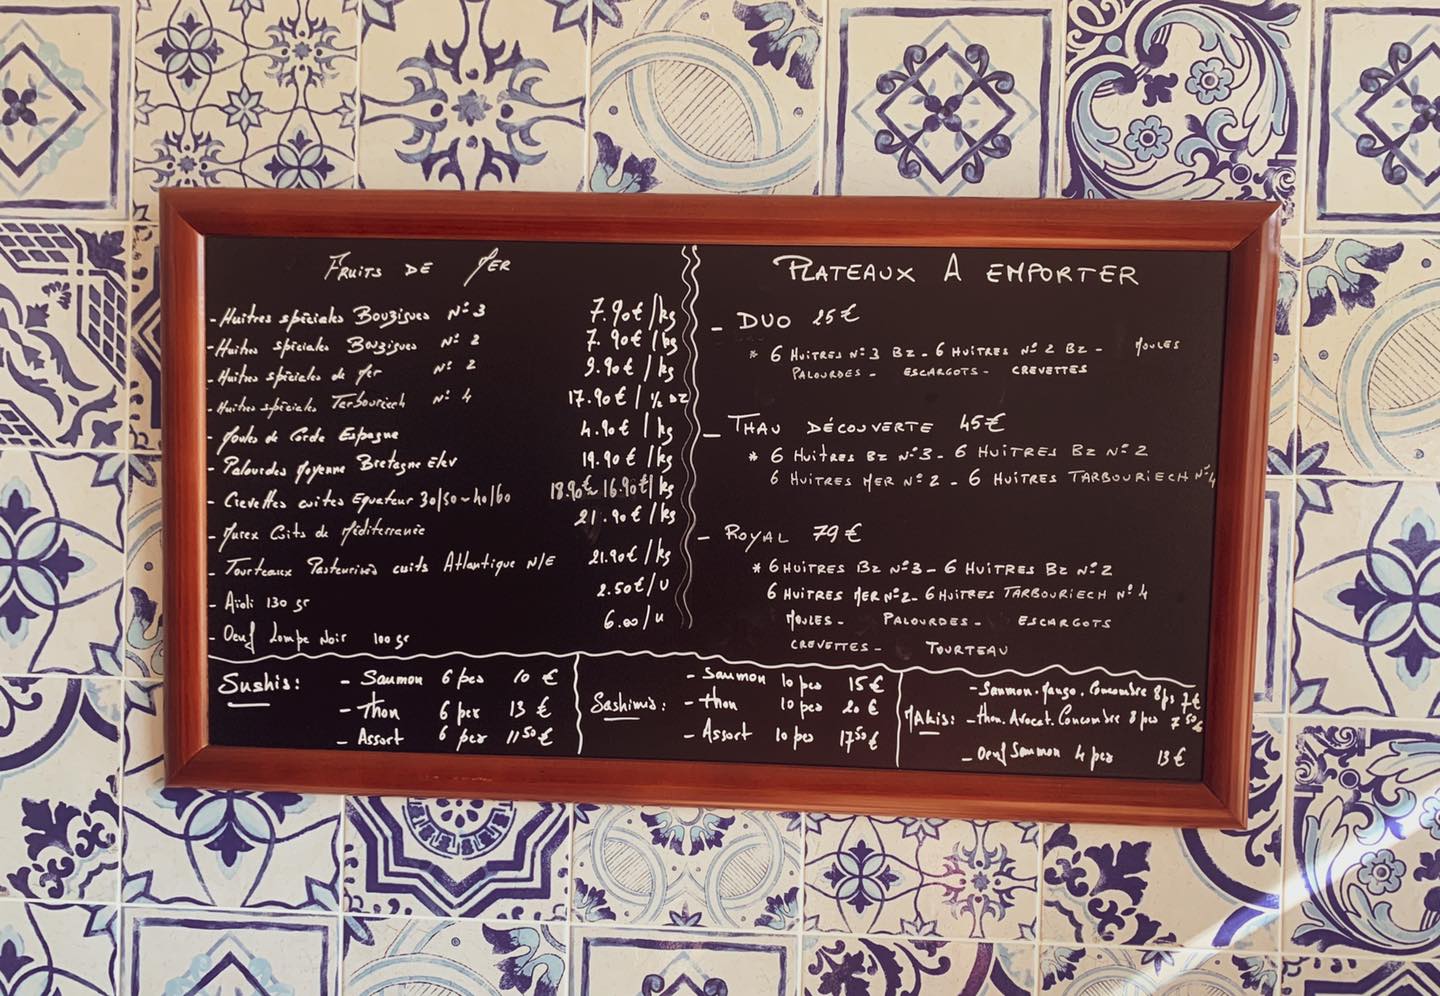 FRUITS DE MER
- Huîtres spéciales Bouzigues N° 3 7.90€/kg
- Huîtres spéciales Bouzigues N° 2 7.90€/kg
- Huîtres spéciales de Mer N° 2 9.90€/kg
- Huîtres spéciales Tarbouriech N° 4 17.90€/ ½ DZ
- Moules de Corde Espagne 4.90€/kg
- Palourdes Moyenne Bretagne Elev 19.90€/kg
- Crevettes cuites Equateur 30/50~40/60 18.90€~16.90€/kg
- Murex Cuits de Méditerranée 21.90€/kg
- Tourteaux Pasteurisés cuits Atlantique N/E 21.90€/kg
- Aïoli 130 gr 2.50€/U
- Oeuf Lompe Noir 100 gr 6.00/u
PLATEAUX A EMPORTER
- DUO 25€
* 6 HUITRES N°3 BZ - 6 HUITRES N°2 BZ - MOULES
PALOURDES - ESCARGOTS - CREVETTES
- THAU DÉCOUVERTE 45€
* 6 HUITRES BZ N°3 - 6 HUITRES BZ N°2
6 HUITRES MER N°2 - 6 HUITRES TARBOURIECH N°4
- ROYAL 79€
* 6 HUITRES BZ N°3 - 6 HUITRES BZ N°2
6 HUITRES MER N°2 - 6 HUITRES TARBOURIECH N°4
MOULES - PALOURDES - ESCARGOTS
CREVETTES - TOURTEAU
Sushis: - Saumon 6 pcs 10 €
- Thon 6 pcs 13 €
- Assort 6 pcs 11⁵⁰€
Sashimis: - Saumon 10 pcs 15€
- Thon 10 pcs 20€
- Assort 10 pcs 17⁵⁰€
MAKis: - Saumon. Mango. Concombre 8 ps 7€
- thon. Avocat. Concombre 8 pcs 7⁵⁰€
- Oeuf Saumon 4 pcs 13€